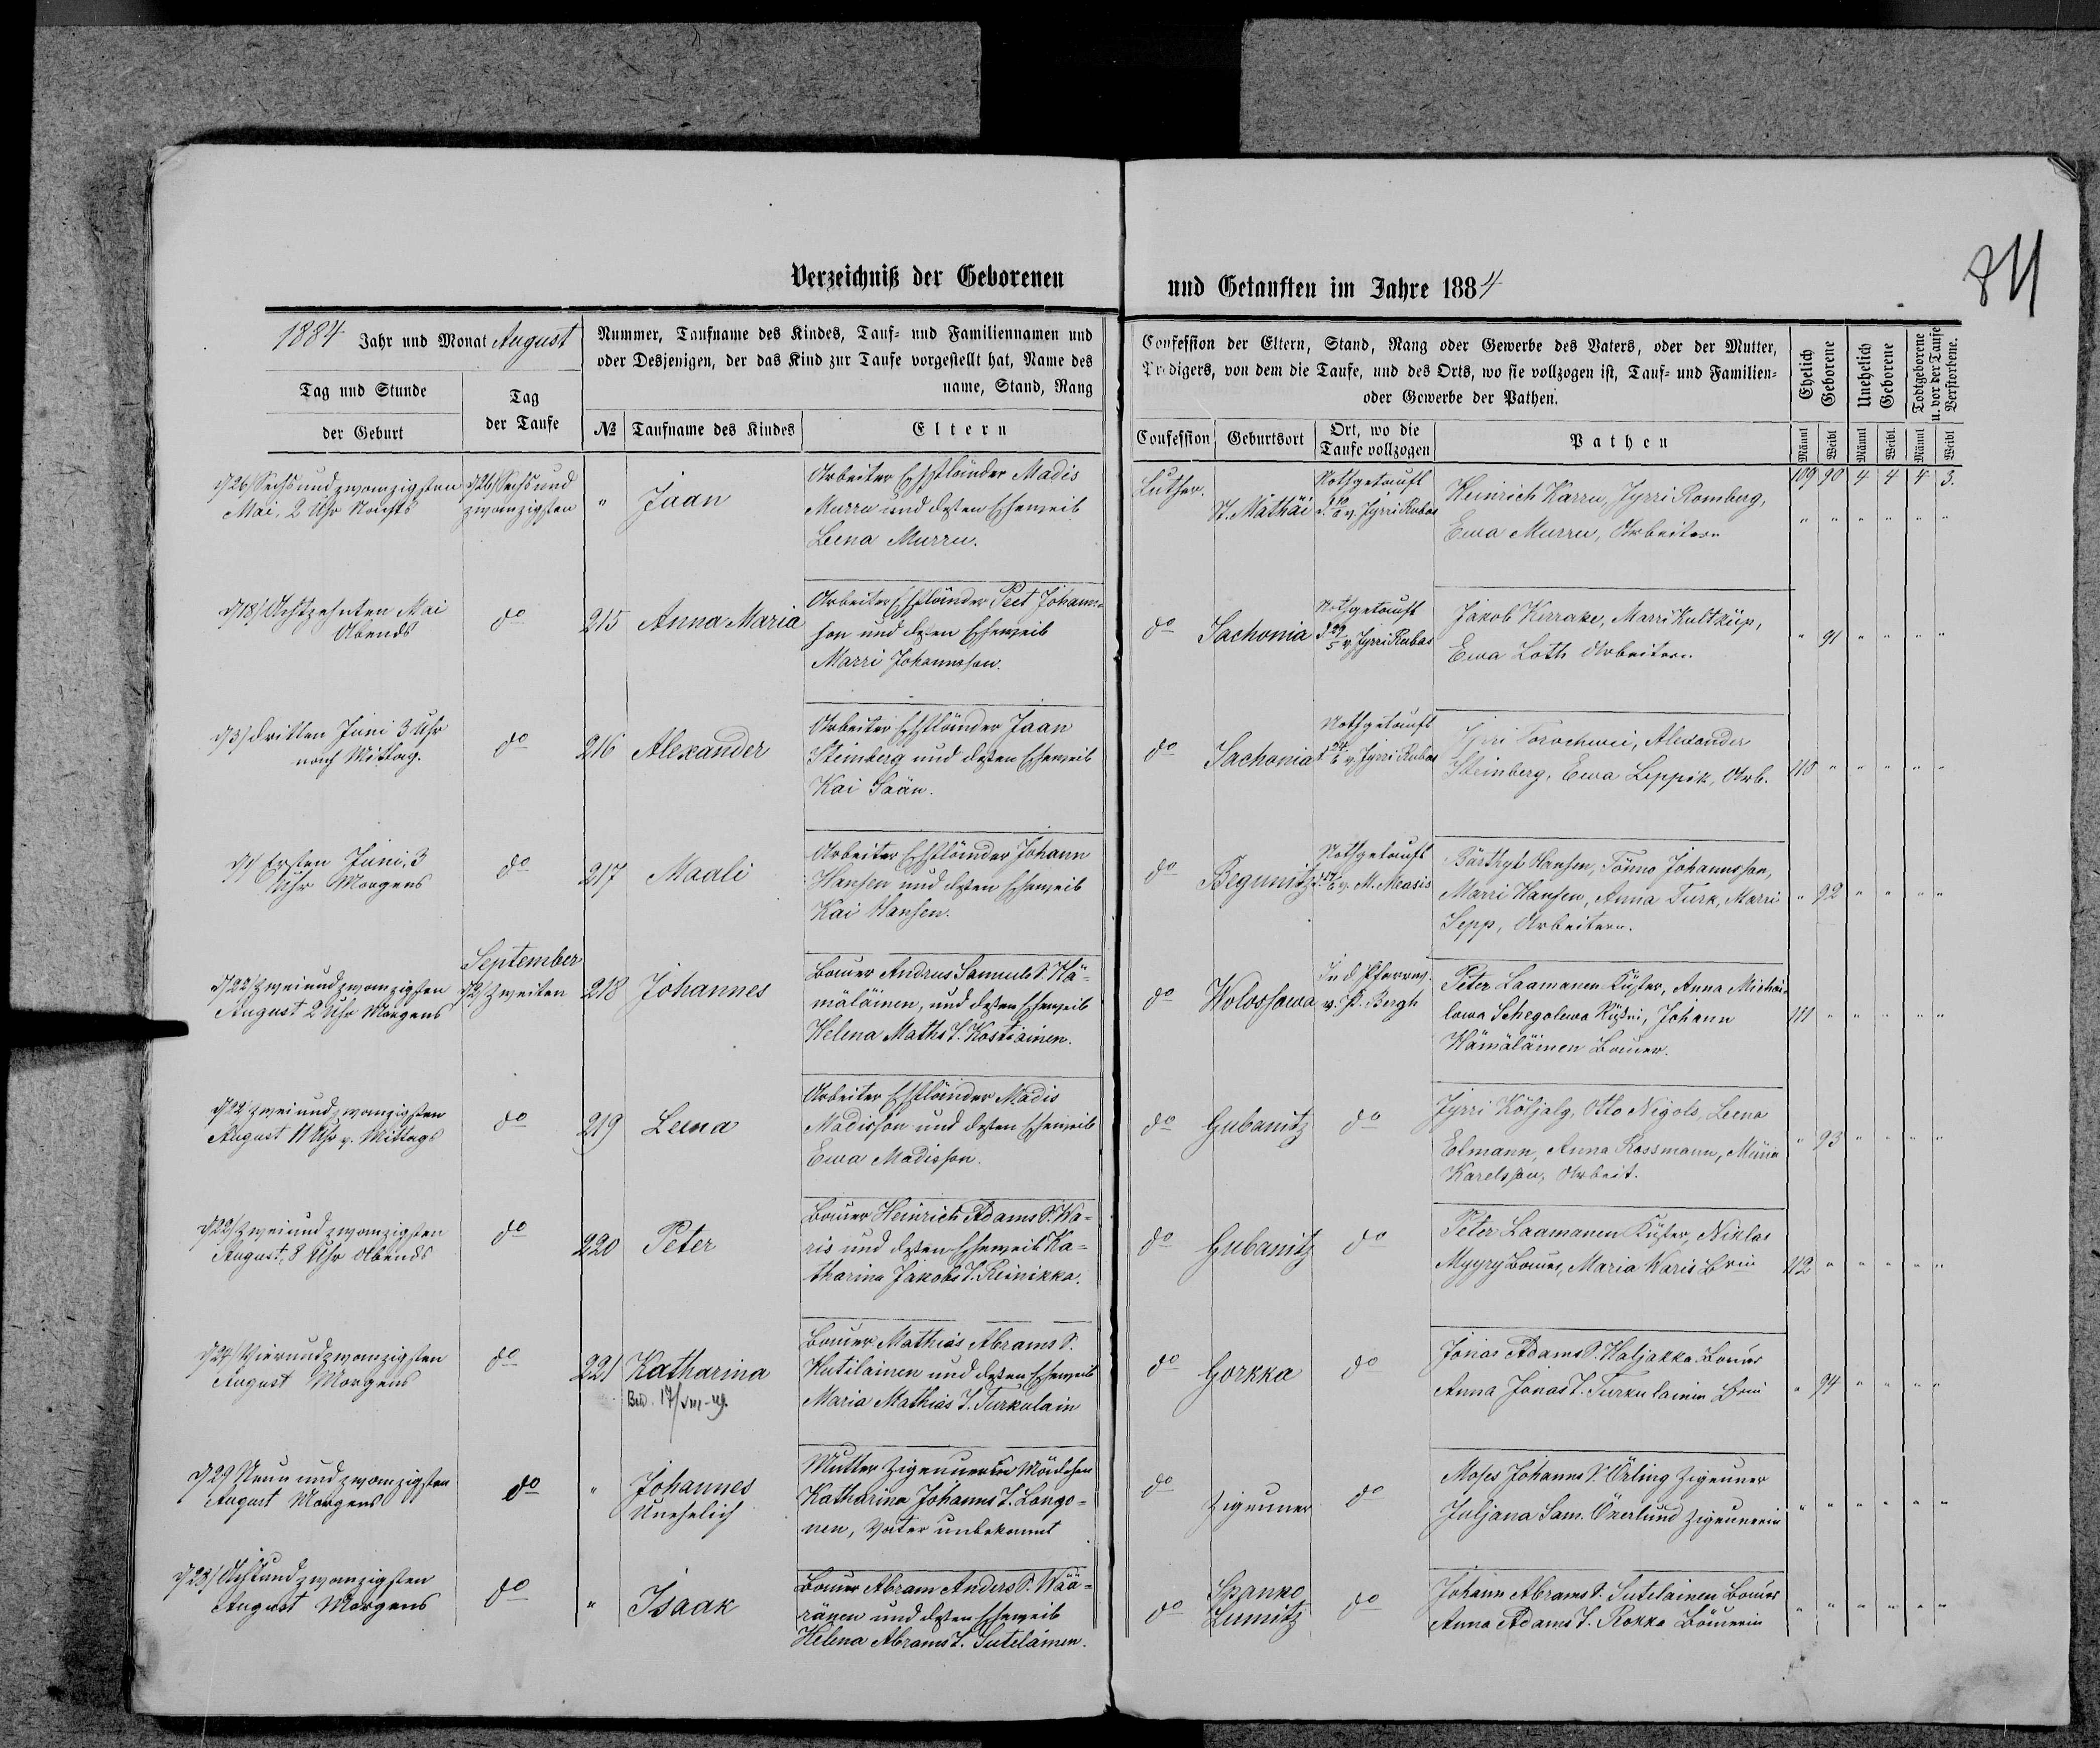 84
Verzeichniß der Geborenen und Getauften im Jahre 1884
1884 Jahr und Monat August
Tag und Stunde
der Geburt
Tag
der Taufe
Nummer, Taufname des Kindes, Tauf- und Familiennamen und
oder Desjenigen, der das Kind zur Taufe vorgestellt hat, Name des
name, Stand, Rang
№ Taufname des Kindes Eltern
Confession der Eltern, Stand, Rang oder Gewerbe des Vaters, oder der Mutter,
Predigers, von dem die Taufe, und des Orts, wo sie vollzogen ist, Tauf- und Familien-
oder Gewerbe der Pathen.
Confession Geburtsort Ort, wo die
Taufe vollzogen
Pathen
Ehelich
Geborene
Unehelich
Geborene
Todtgeborene
u. vor der Taufe
Verstorbene.
Männl Weibl Männl Weibl. Männl Weibl
109 90 4 4 4 3.
d/26/ Sechsundzwanzigsten
Mai, 2 Uhr Nachts
d/26/ Sechsund
zwanzigsten
" Jaan
Arbeiter Ehstländer Madis
Murru und dessen Eheweib
Leena Murru.
Luther.
St. Mathäi
Nothgetauft
v. Jyrri Rubas
Heinrich Karru, Jyrri Romberg,
Ewa Murru, Arbeitern
" " " " " "
d/18/ Achtzehnten Mai
Abends
do 215 Anna Maria
Arbeiter Ehstländer Peet Johann-
son und dessen Eheweib
Marri Johannson.
do Sachonia
Nothgetauft
d 29/5 v. Jyrri Rubas
Jakob Kerrake, Marri Kultküp,
Ewa Loth Arbeitern.
" 91 " " " "
d/3/ dritten Juni 3 Uhr
nach Mittag.
do 216 Alexander
Arbeiter Ehstländer Jaan
Steinberg und dessen Eheweib
Kai Jään.
do Sachonia
Nothgetauft
v. Jyrri Rubas
Alexander
Steinberg, Ewa Leppik, Arb.
110 " " " " "
d/1/ Ersten Juni, 3
Uhr Morgens
do 217 Maali
Arbeiter Ehstländer Johann
Hansen und dessen Eheweib
Kai Hansen.
do Begunitz
Nothgetauft
v. M. Measis
Hansen, Tönno Johannson,
Marri Hansen, Anna Turk, Marri
Sepp, Arbeitern.
" 92 " " " "
September
d/22/ zweiundzwanzigsten
August 2 Uhr Morgens
d/2/ Zweiten
218 Johannes
Bauer Andrus Samuels S. Hä-
mäläinen, und dessen Eheweib
Helena Maths T. Kostiainen.
do Wolossowa
In d. Pfarrwg.
v. P. Bergh
Peter Laamanen Küster, Anna Michai-
lowa Schegolewa Küstri, Johann
Hämäläinen Bauer.
111 " " " " "
d/22/ zweiundzwanzigsten
August 11 Uhr v. Mittags
do 219 Leena
Arbeiter Ehstländer Madis
Madisson und dessen Eheweib
Ewa Madisson.
do Gubanitz do
Jyrri Köljalg, Otto Nigols, Leena
Elmann, Anna Rossmann, Miina
Karelsson, Arbeit.
" 93 " " " "
d/22/ Zweiundzwanzigsten
August, 8 Uhr Abends
do 220 Peter
Bauer Heinrich Adams S. Ka-
ris und dessen Eheweib Ka-
tharina Jakobs T. Reinikka.
do Gubanitz do
Peter Laamanen Küster, Niklas
Myyry Bauer, Maria Karis Brin
112 " " " " "
d/24/ Vierundzwanzigsten
August Morgens
do 221 Katharina
17/VIII-49.
Bauer Mathias Abrams S.
Hutilainen und dessen Eheweib
Maria Mathias T. Turkulain
do Gorkka do
Jonas Adams S. Haljakka Bauer
Anna Jonas T. Turkulainen Brin
" 94 " " " "
d/29 Neunundzwanzigsten
August Morgens
do " Johannes
Unehelich
Mutter Zigeunerin Mädchen
Katharina Johanns T. Longo-
nen, Vater unbekannt
do Zigeuner do
Moses Johanns S. Örling Zigeuner
Juljana Sam. Önerlund Zigeunerin
" " " " " "
d/28/ Achtundzwanzigsten
August Morgens
do " Isaak
Bauer Abram Anders S. Wää-
ränen und dessen Eheweib
Helena Abrams T. Suteläinen.
do Spanko
Lumitz do
Johann Abrams S. Sutelainen Bauer
Anna Adams T. Rokka Bäuerin
" " " " " "